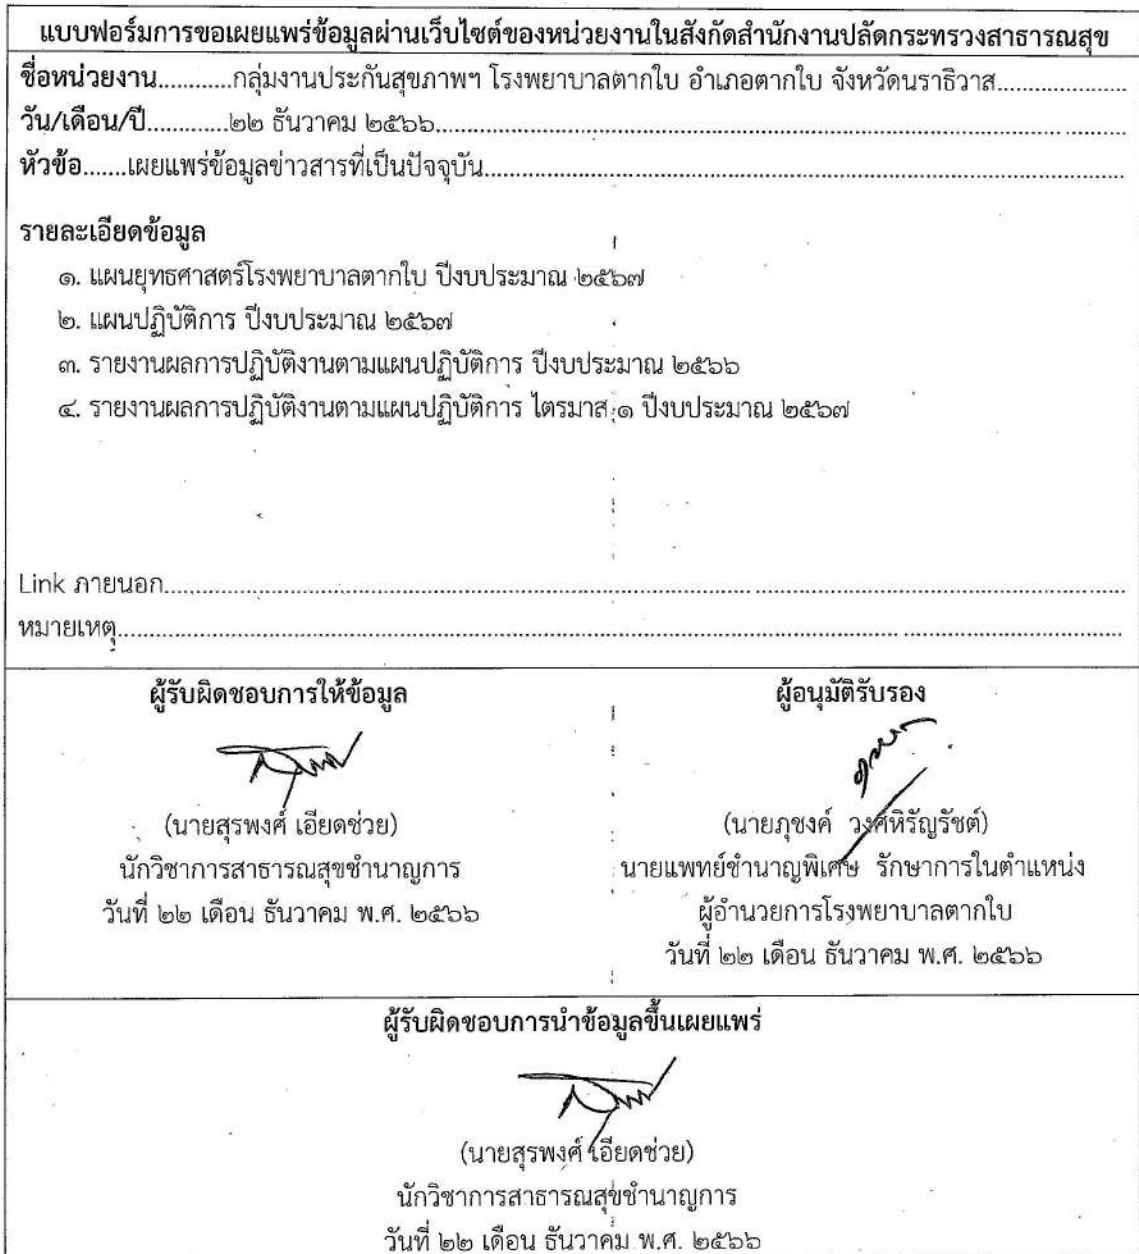 แบบฟอร์มการขอเผยแพร่ข้อมูลผ่านเว็บไซต์ของหน่วยงานในสังกัดสำนักงานปลัดกระทรวงสาธารณสุข
ชื่อหน่วยงาน............กลุ่มงานประกันสุขภาพฯ โรงพยาบาลตากใบ อำเภอตากใบ จังหวัดนราธิวาส......................
วัน/เดือน/ปี.............๒๒ ธันวาคม ๒๕๖๖..............................................................................
หัวข้อ.......เผยแพร่ข้อมูลข่าวสารที่เป็นปัจจุบัน..............................................................................
รายละเอียดข้อมูล
๑. แผนยุทธศาสตร์โรงพยาบาลตากใบ ปีงบประมาณ ๒๕๖๗
๒. แผนปฏิบัติการ ปีงบประมาณ ๒๕๖๗
๓. รายงานผลการปฏิบัติงานตามแผนปฏิบัติการ ปีงบประมาณ ๒๕๖๖
๔. รายงานผลการปฏิบัติงานตามแผนปฏิบัติการ ไตรมาส ๑ ปีงบประมาณ ๒๕๖๗
Link ภายนอก..............................................................................
หมายเหตุ..............................................................................
ผู้รับผิดชอบการให้ข้อมูล
(นายสุรพงศ์ เอียดช่วย)
นักวิชาการสาธารณสุขชำนาญการ
วันที่ ๒๒ เดือน ธันวาคม พ.ศ. ๒๕๖๖
ผู้อนุมัติรับรอง
(นายภุชงค์ วงศ์หิรัญรัชต์)
นายแพทย์ชำนาญพิเศษ รักษาการในตำแหน่ง
ผู้อำนวยการโรงพยาบาลตากใบ
วันที่ ๒๒ เดือน ธันวาคม พ.ศ. ๒๕๖๖
ผู้รับผิดชอบการนำข้อมูลขึ้นเผยแพร่
(นายสุรพงศ์ เอียดช่วย)
นักวิชาการสาธารณสุขชำนาญการ
วันที่ ๒๒ เดือน ธันวาคม พ.ศ. ๒๕๖๖